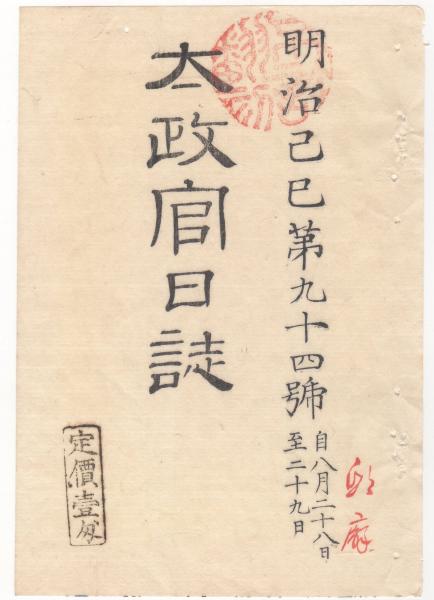 明治己巳第九十四號
自八月二十八日
至二十九日
太政官日誌
定價壹匁